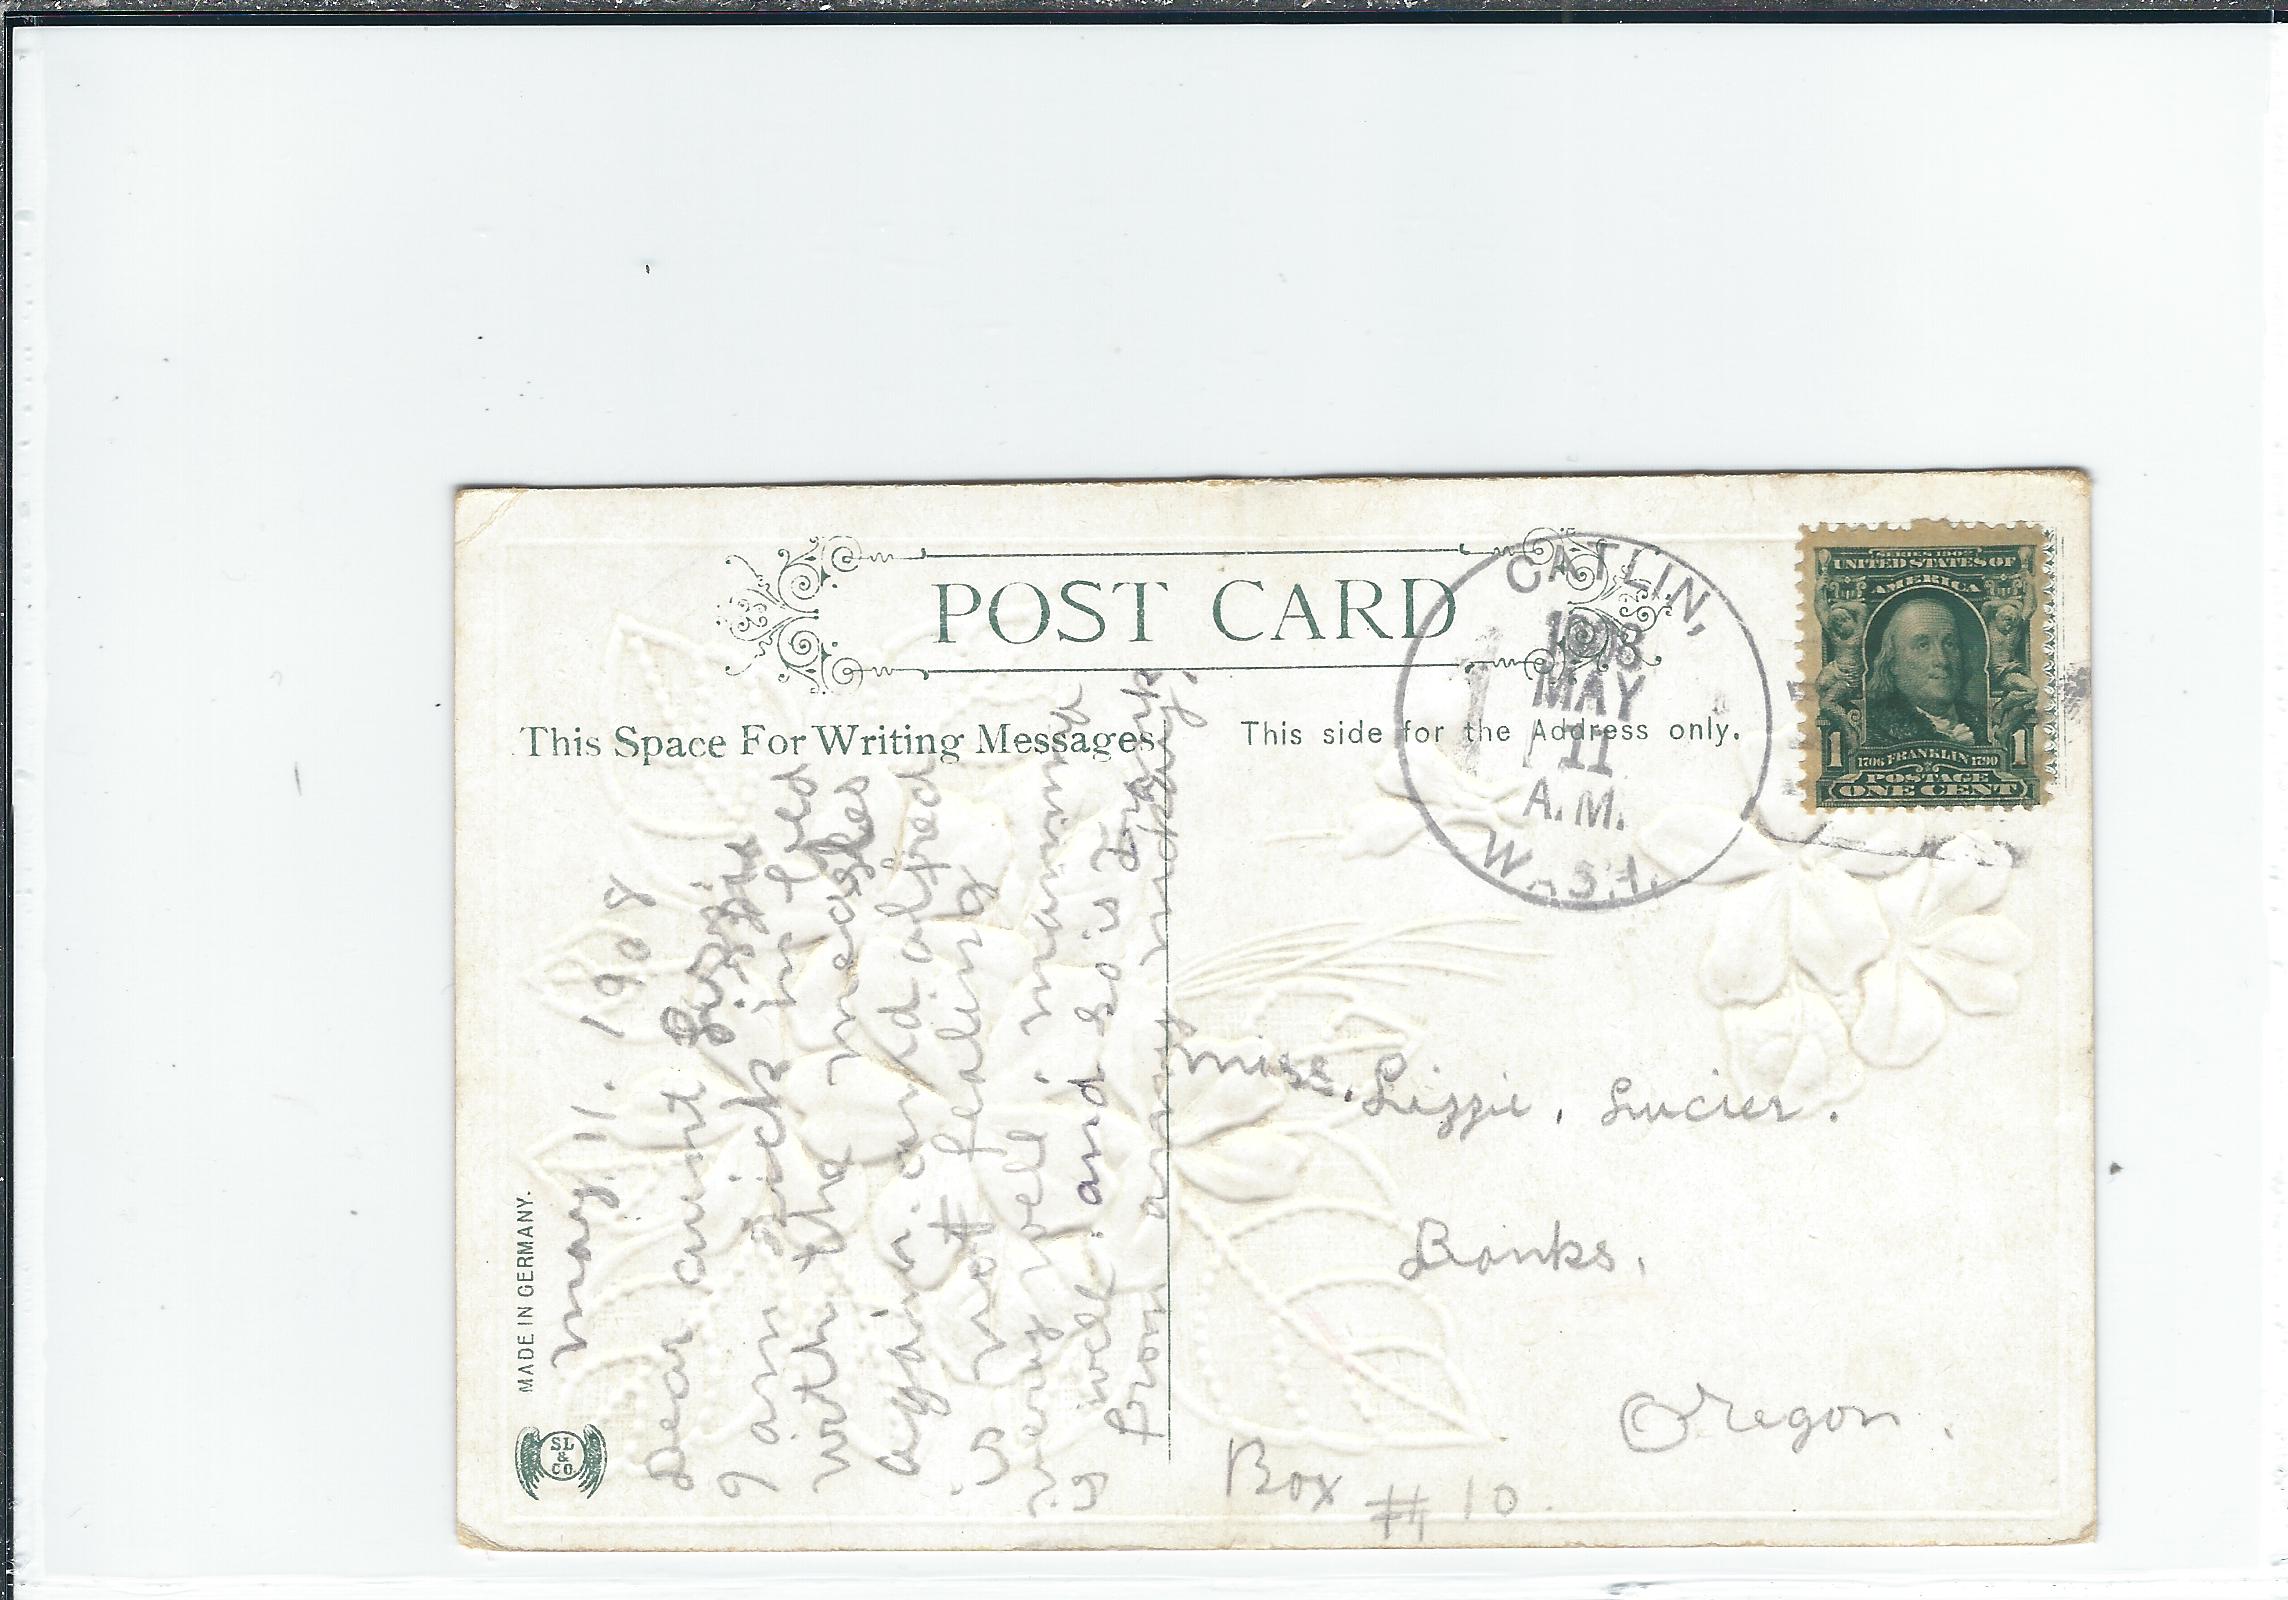 POST CARD
This Space For Writing Messages
This side for the Address only.
CATLIN,
1908
MAY
11
A.M.
WASH.
SERIES 1902
UNITED STATES OF
AMERICA
1 1
1706 FRANKLIN 1790
POSTAGE
ONE CENT
MADE IN GERMANY.
SL
&
CO.
may. 11. 1908
Dear aunt Lizzie
I am sick in bed
with the measles
again. and alfred
is not fealing
very well mamma
is well. and so is Frank
from army
miss. Lizzie. Lucier.
Banks.
Oregon.
Box # 10.